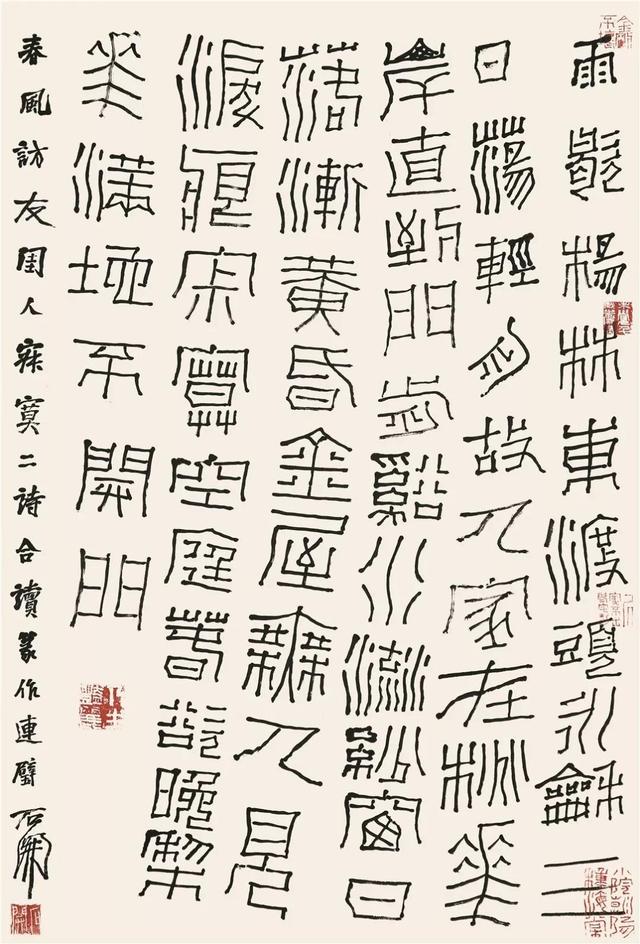 雨歇楊林東渡頭永龢三
日蕩輕舟故人家在桃華
岸直到門歬谿水流紗窗日
落漸黃昏金屋無人見
淚痕寂寞空庭春欲晚棃
華滿地不開門
春風訪友閨人寂寞二詩合讀篆作連璧 石開